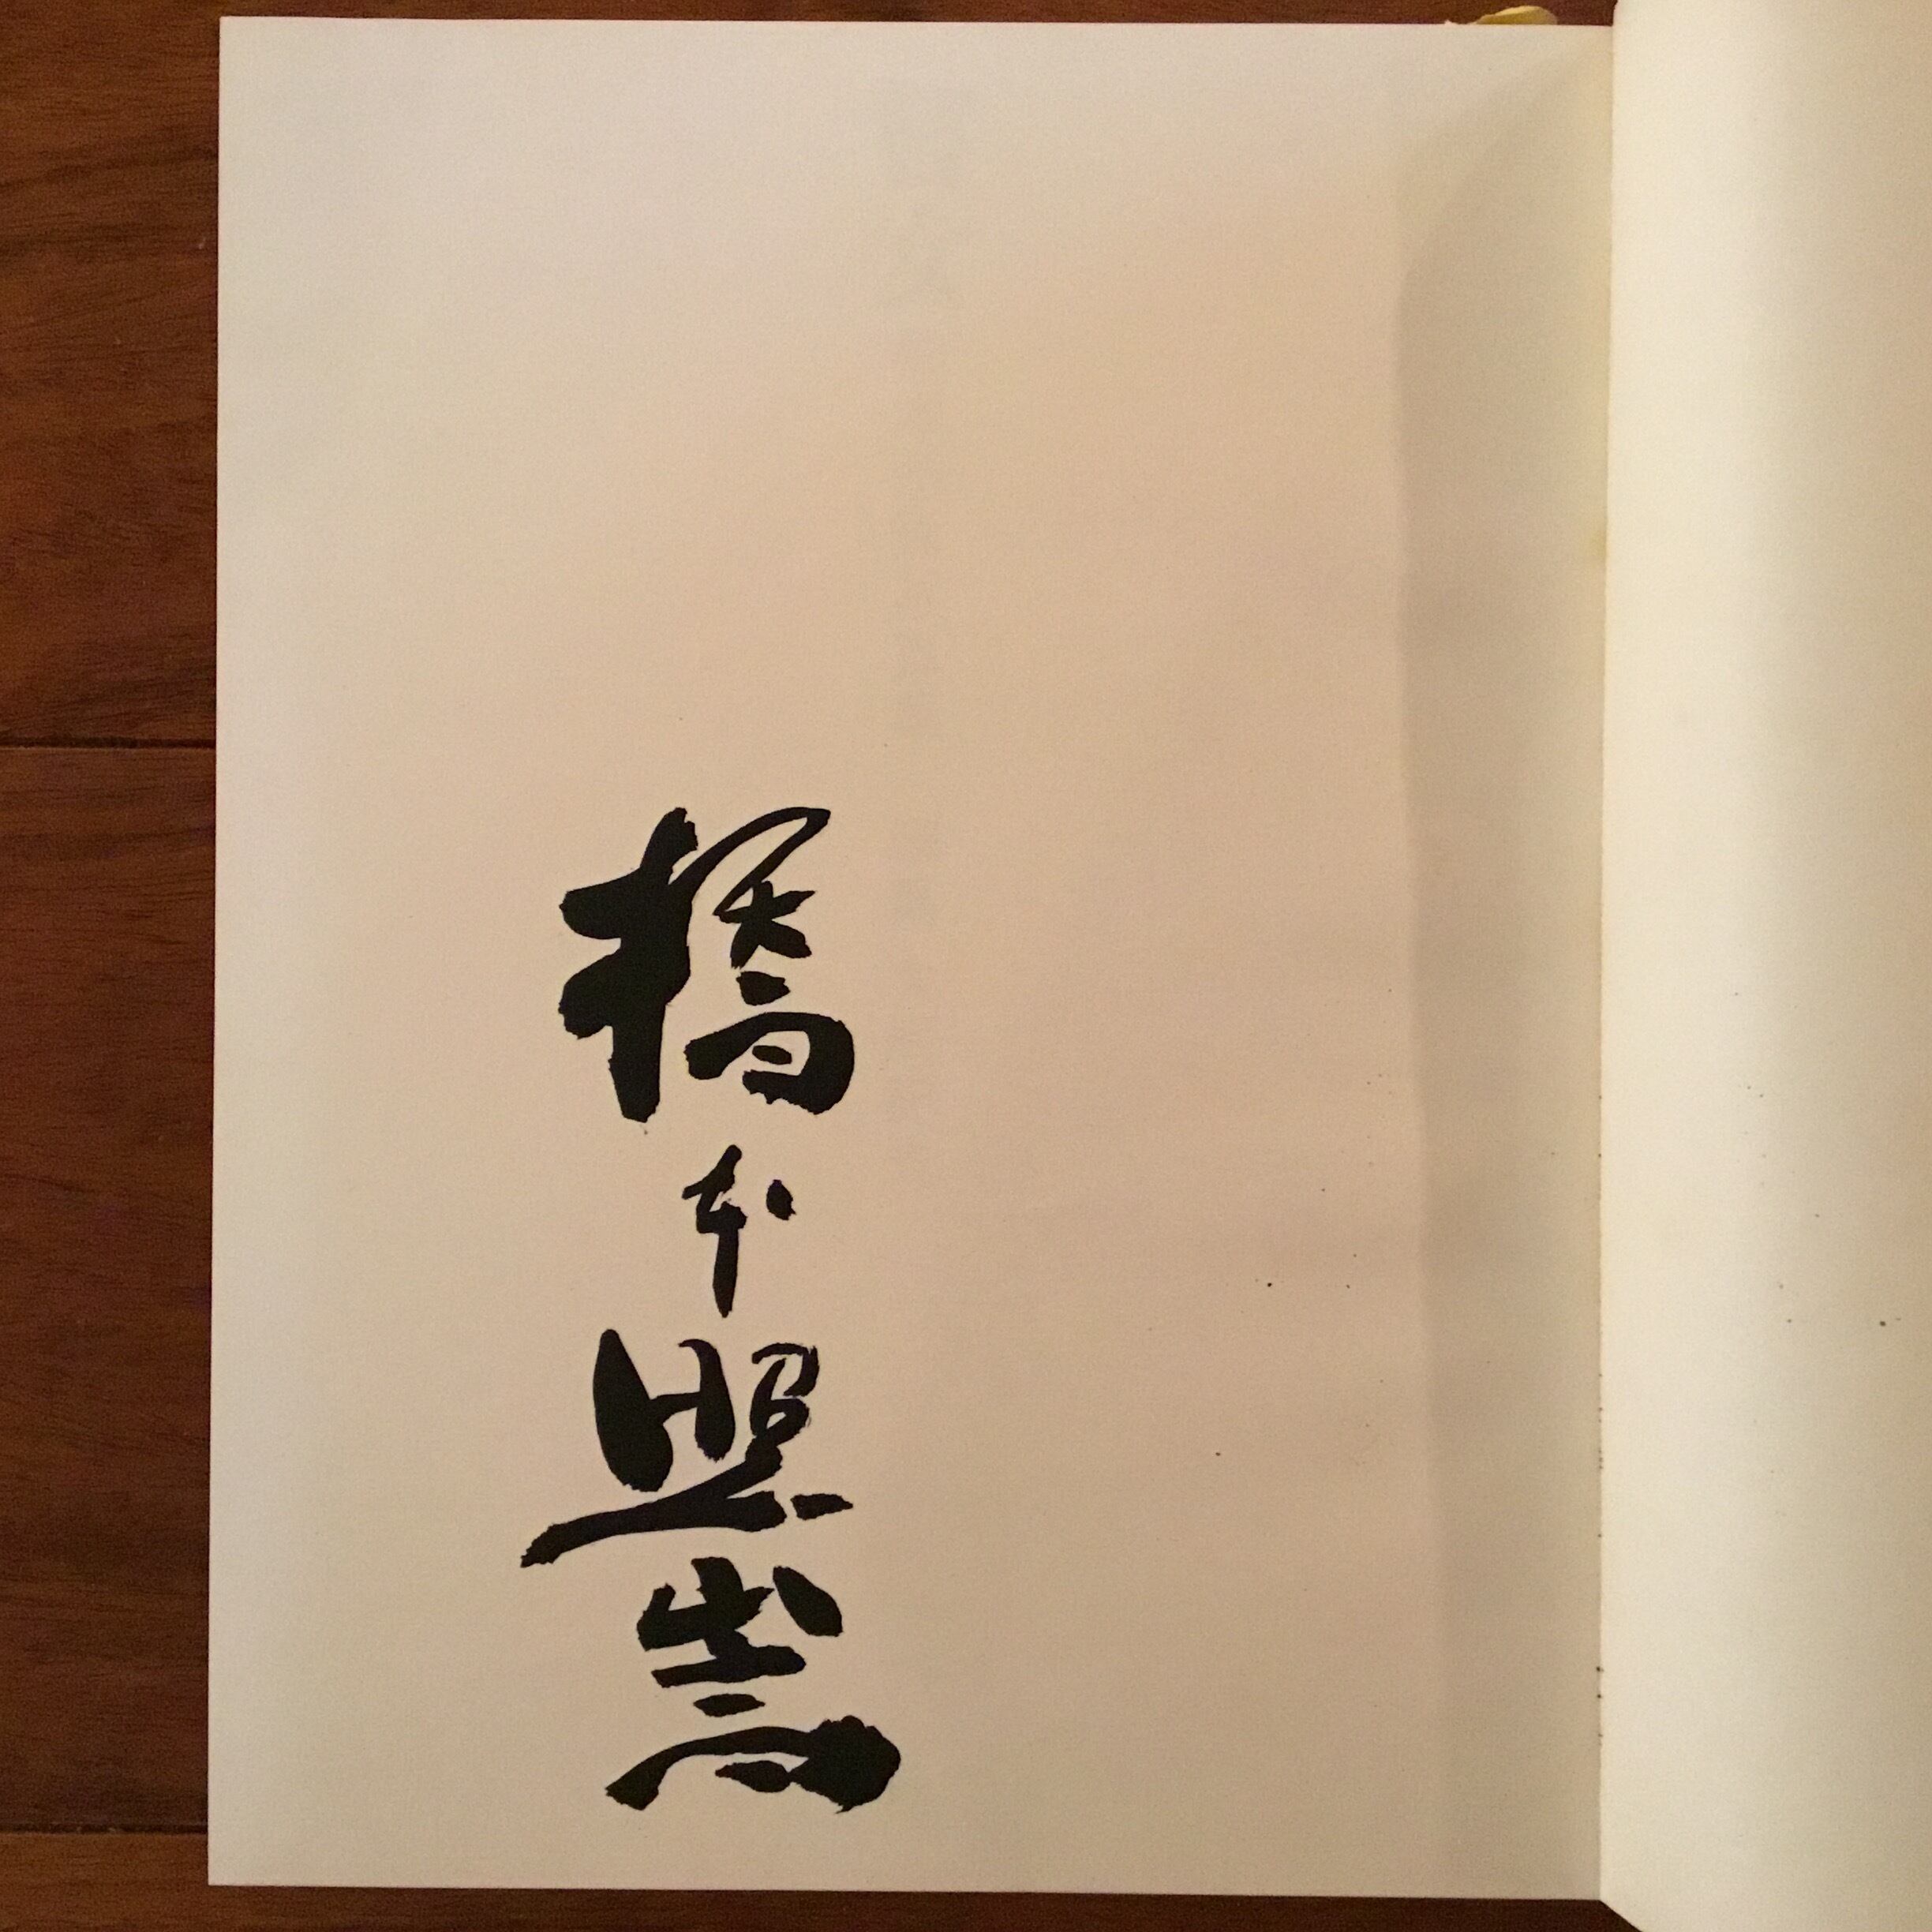 橋本照嵩